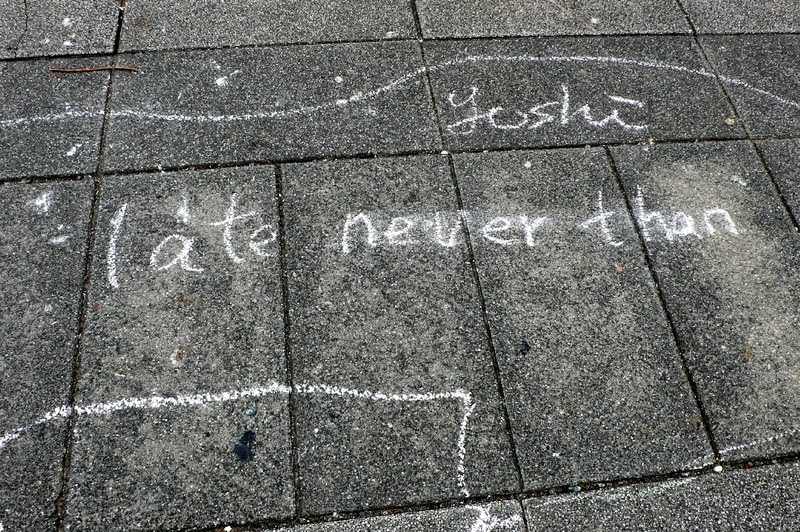 Yoshi
late never than